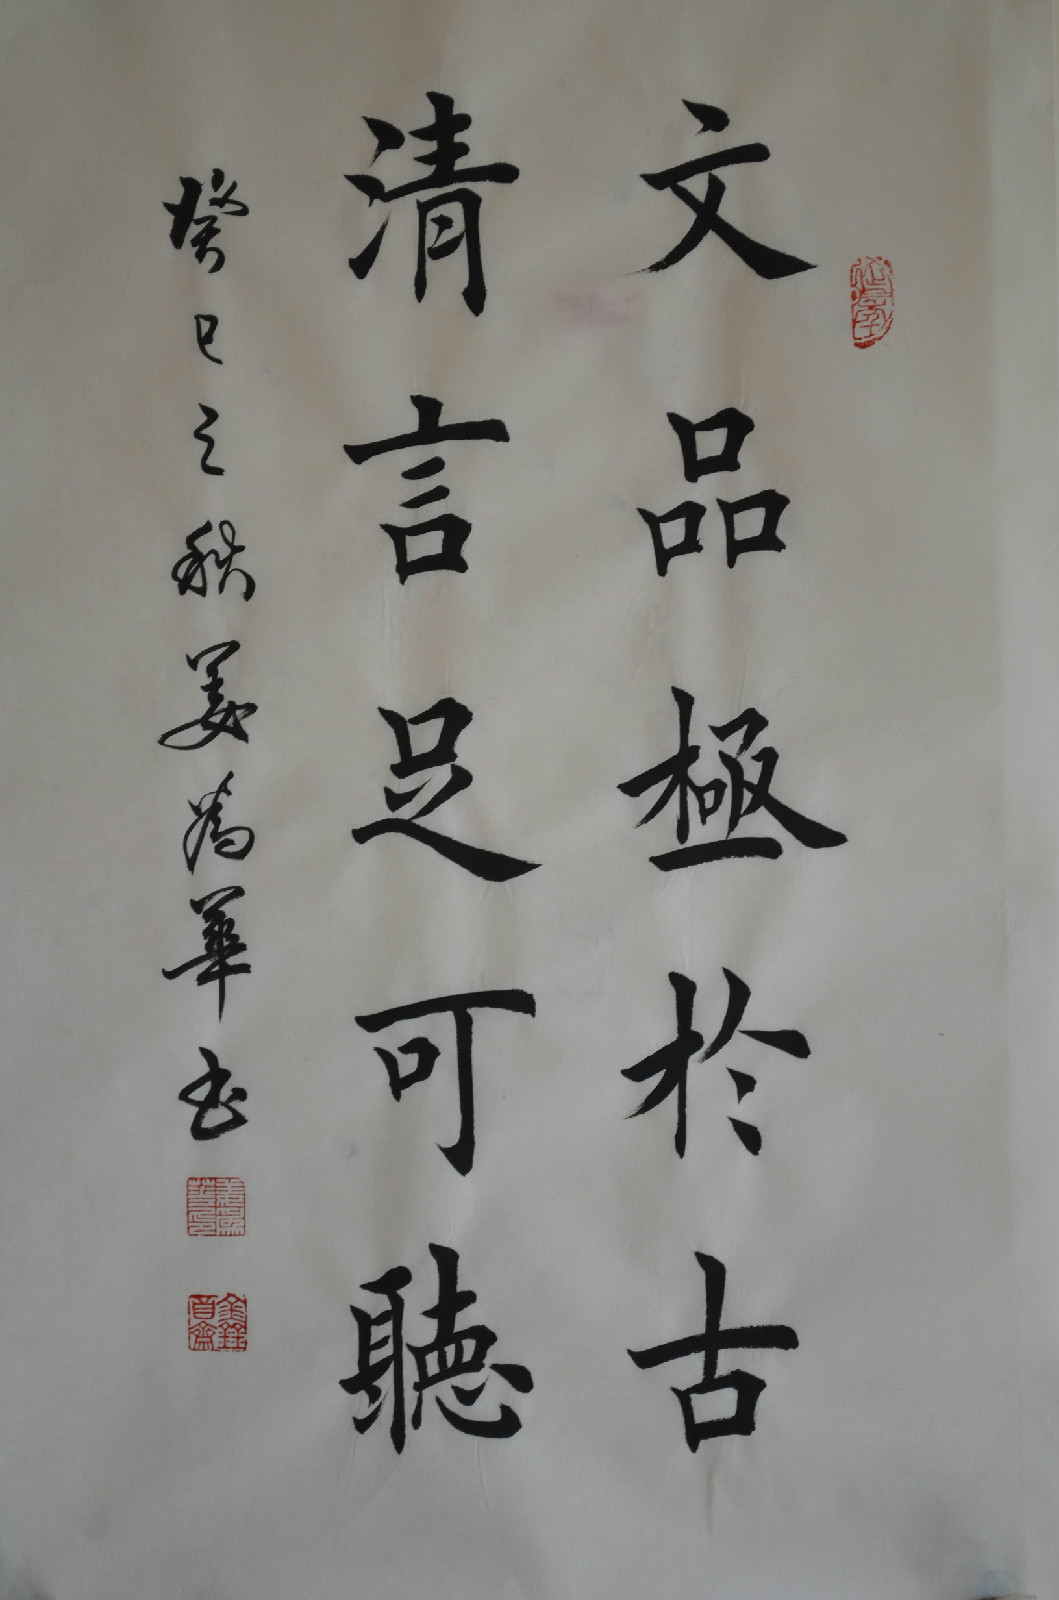 文品極於古
清言足可聽
癸巳之秋姜為華书